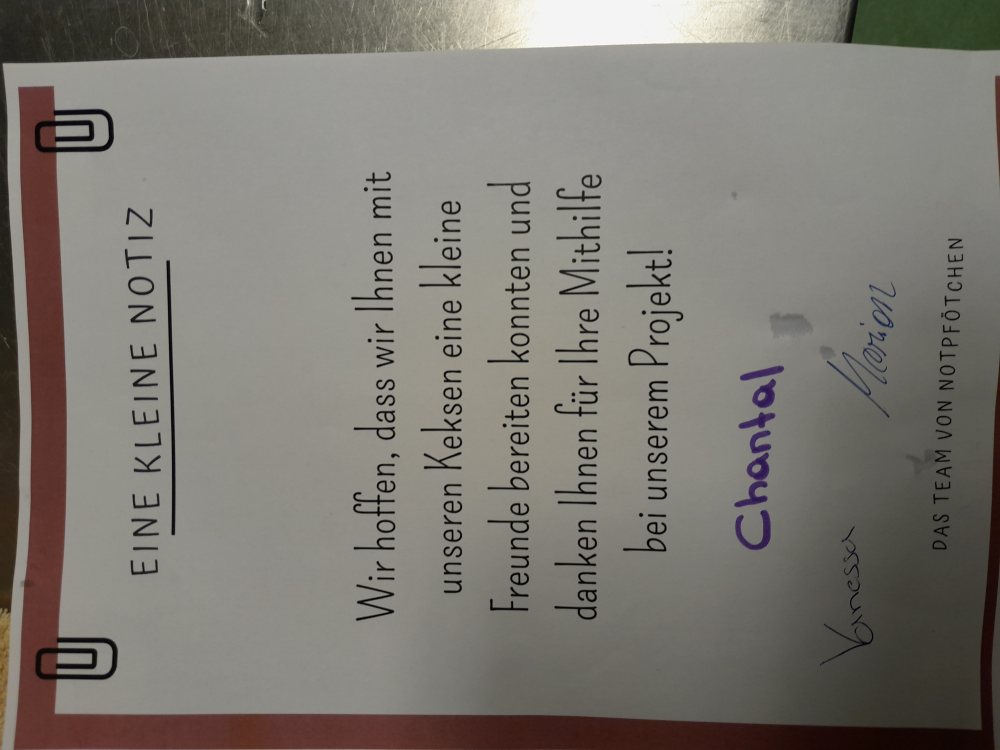 EINE KLEINE NOTIZ
Wir hoffen, dass wir Ihnen mit
unseren Keksen eine kleine
Freunde bereiten konnten und
danken Ihnen für Ihre Mithilfe
bei unserem Projekt!
Chantal
Vanessa
Marion
DAS TEAM VON NOTPFÖTCHEN